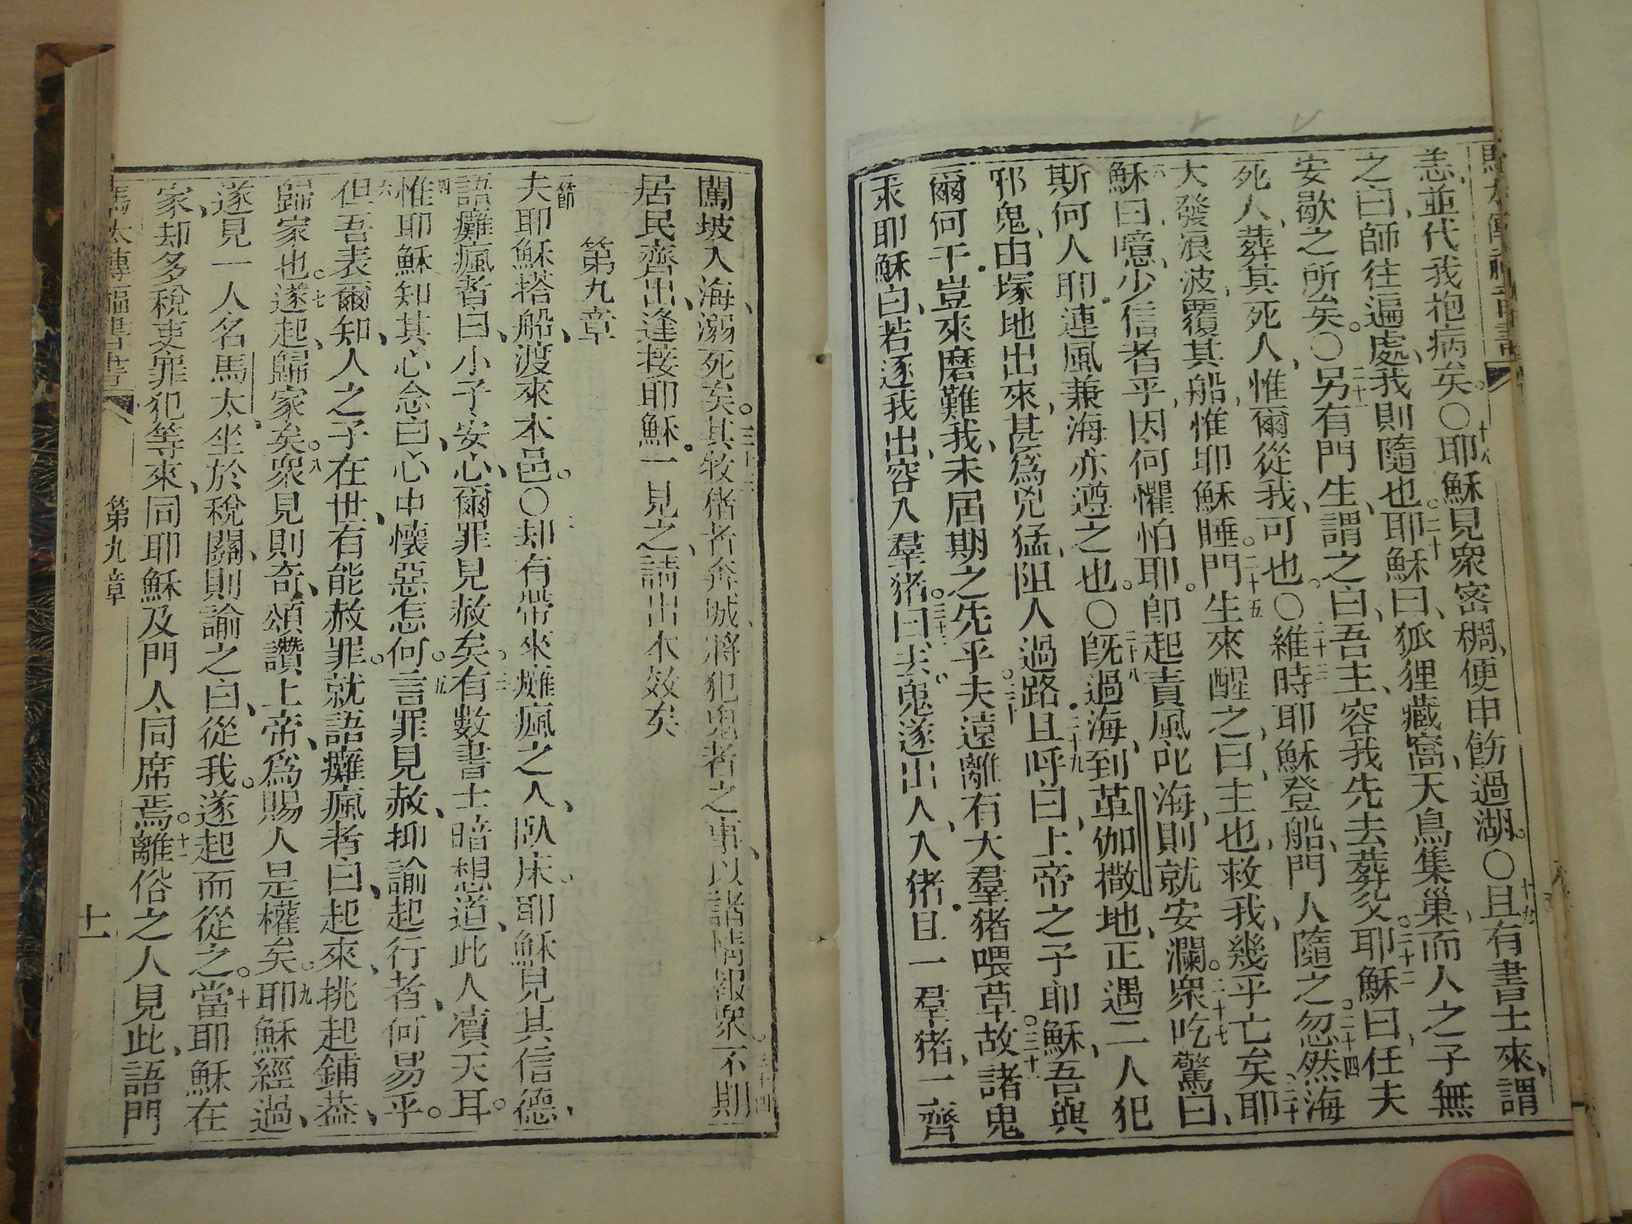 恙並代我抱病矣○十八耶穌見衆密稠便申飭過湖○十九且有書士來謂
之曰師往遍處我則隨也二十耶穌曰狐狸藏窩天鳥集巢而人之子無
安歇之所矣○二十一另有門生謂之曰吾主容我先去葬父二十二耶穌曰任夫
死人葬其死人惟爾從我可也○二十三維時耶穌登船門人隨之二十四忽然海
大發浪波覆其船惟耶穌睡二十五門生來醒之曰主也救我幾乎亡矣二十六耶
穌曰噫少信者乎因何懼怕耶卽起責風叱海則就安瀾二十七衆吃驚曰
斯何人耶連風兼海亦遵之也○二十八旣過海到革伽撒地正遇二人犯
邪鬼由塚地出來甚爲兇猛阻人過路二十九且呼曰上帝之子耶穌吾與
爾何干豈來磨難我未屆期之先乎三十夫遠離有大羣猪喂草三十一故諸鬼
求耶穌曰若逐我出容入羣猪三十二曰去鬼遂出人入猪且一羣猪一齊
闖坡入海溺死矣三十三其牧猪者奔城將犯鬼者之事以諸情報衆三十四不期
居民齊出逢接耶穌一見之請出本效矣
第九章
一節夫耶穌搭船渡來本邑○二却有帶來癱瘋之人臥床耶穌見其信德
語癱瘋者曰小子安心爾罪見赦矣三有數書士暗想道此人瀆天耳
四惟耶穌知其心念曰心中懷惡怎何五言罪見赦抑諭起行者何易乎
六但吾表爾知人之子在世有能赦罪就語癱瘋者曰起來挑起鋪葢
歸家也七遂起歸家矣八衆見則奇頌讚上帝爲賜人是權矣九耶穌經過
遂見一人名馬太坐於稅關則諭之曰從我遂起而從之十當耶穌在
家却多稅吏罪犯等來同耶穌及門人同席焉十一離俗之人見此語門
馬太傳福音書 第九章 十一